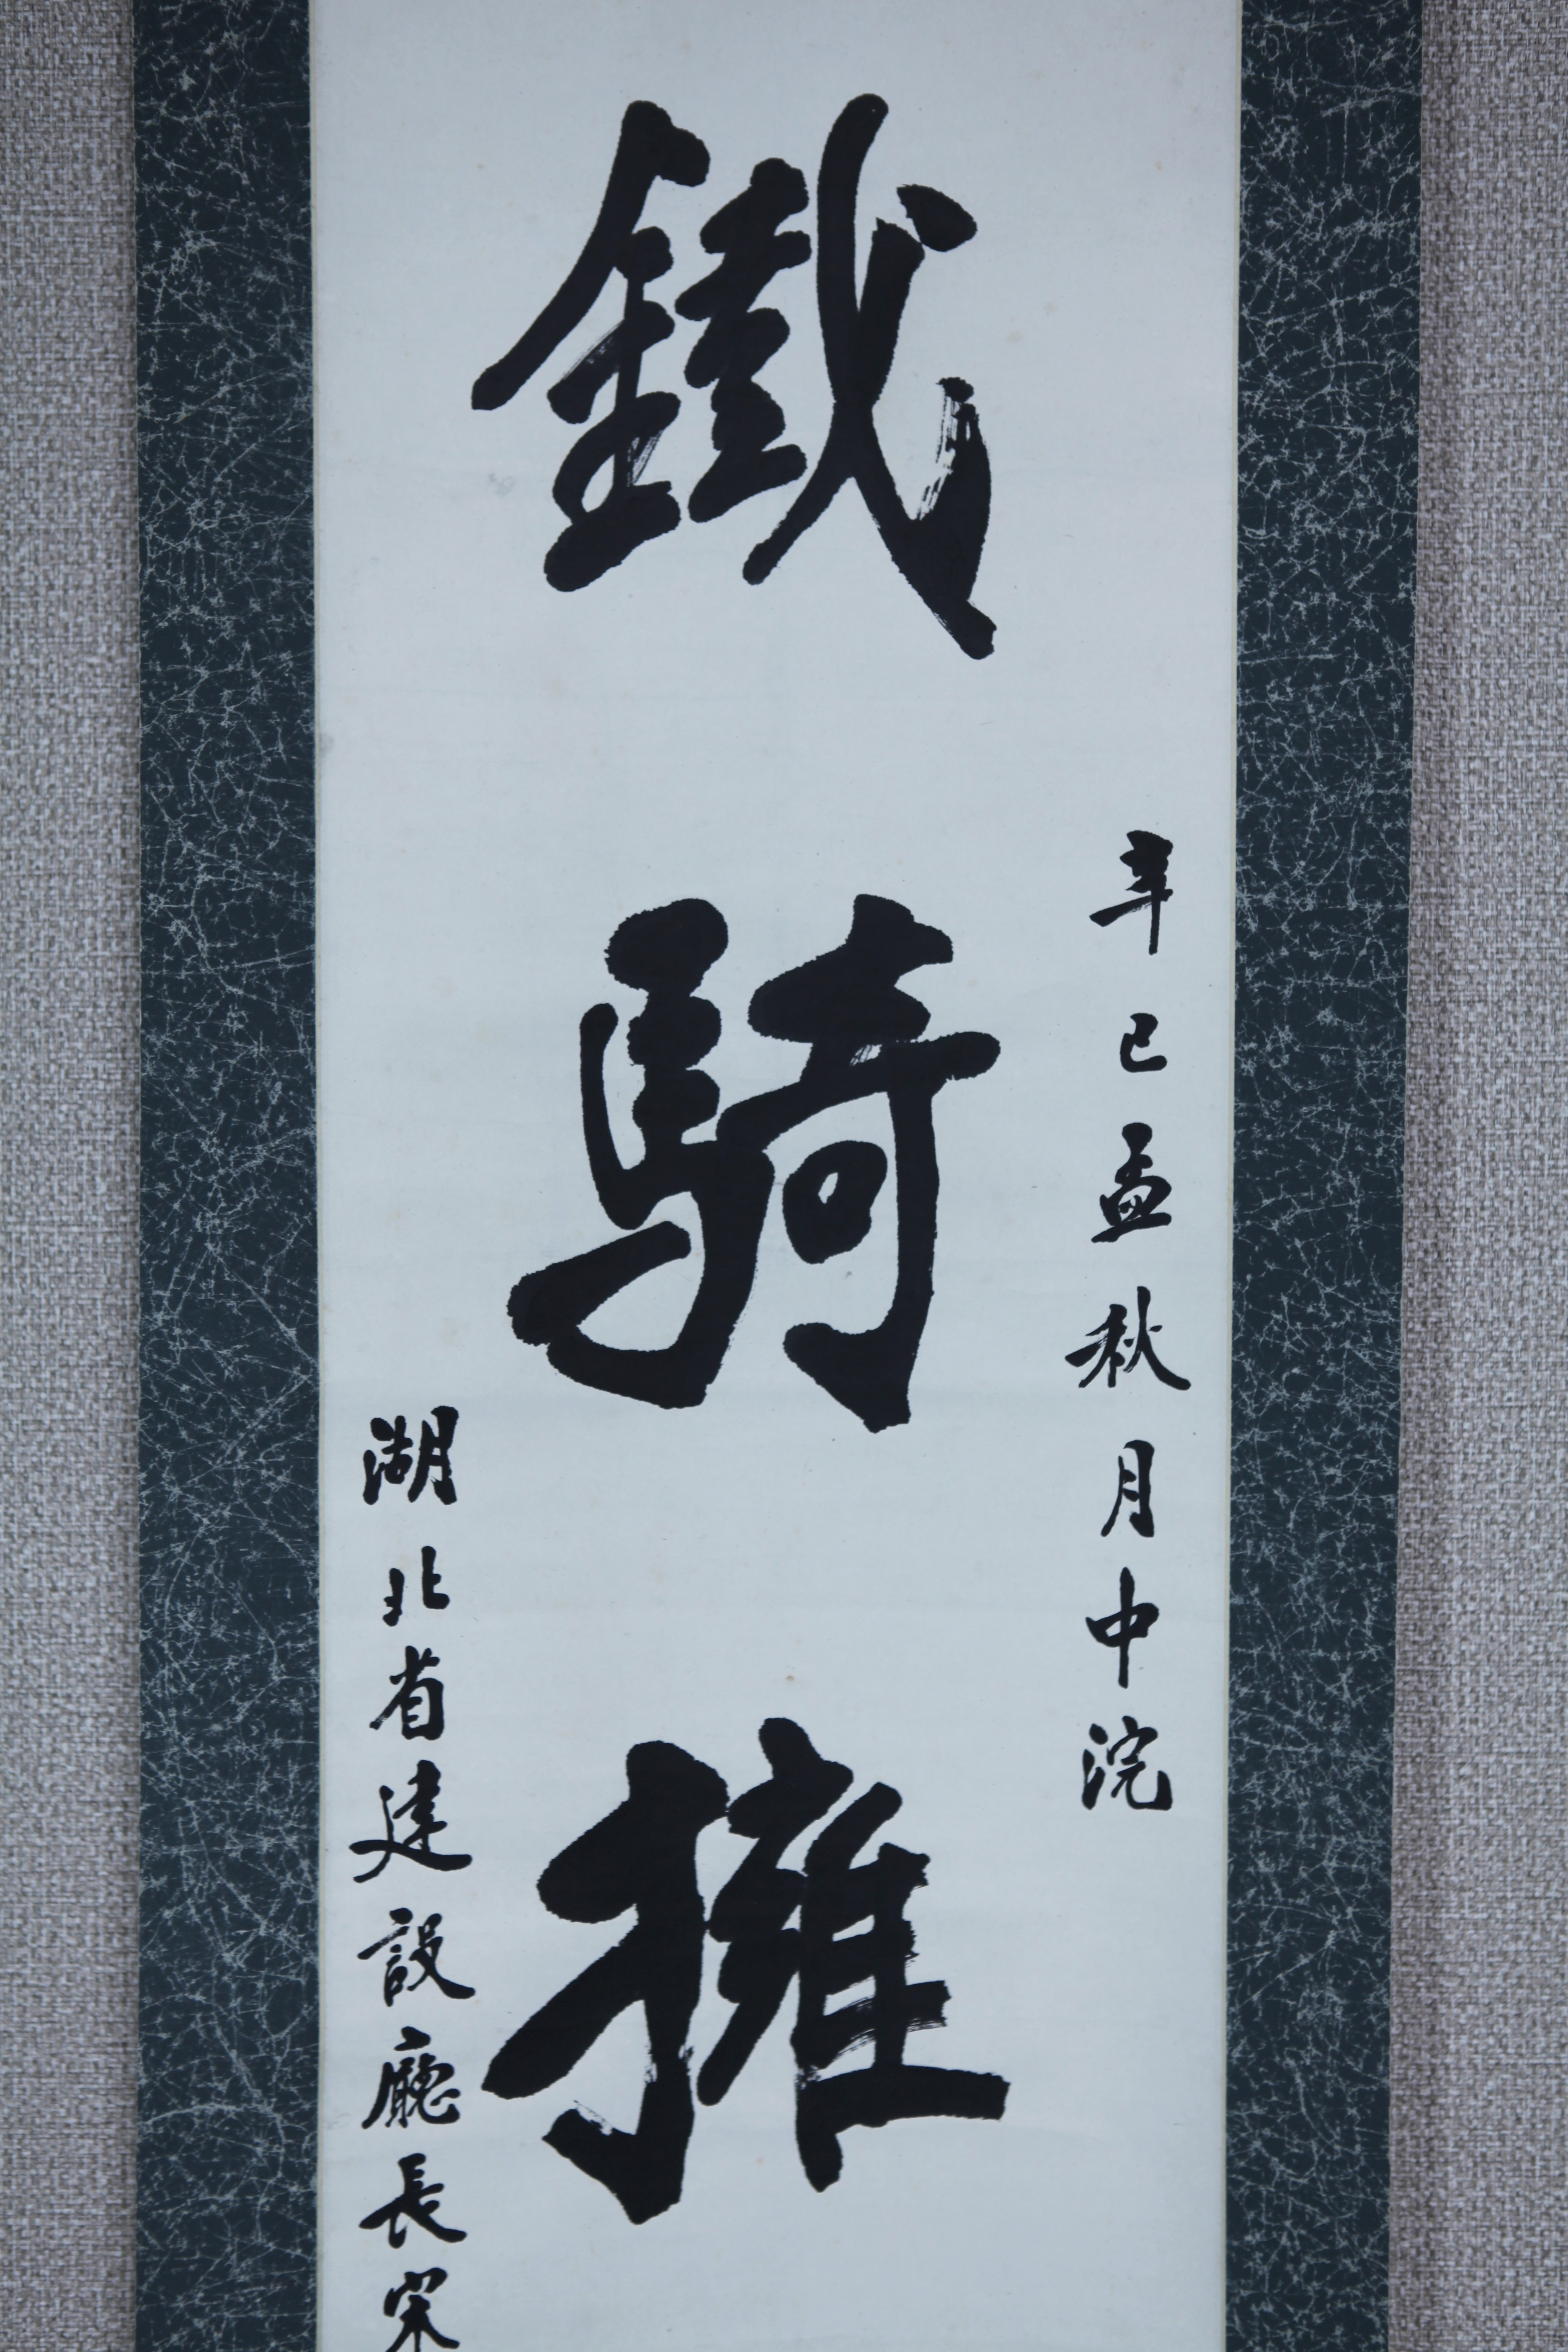 辛巳孟秋月中浣
鐵騎擁
湖北省建設廳長宋